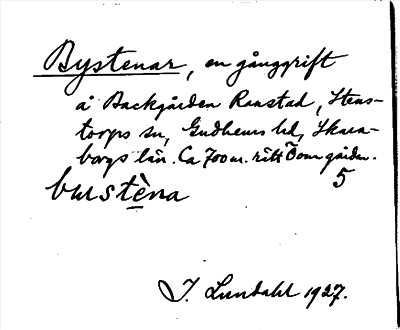 Bystenar, en gånggrift
å Backgården Ranstad, Stens-
torps sn, Gudhems hd, Skara-
borgs län. Ca 700 m. rätt Ö om gården.
5
bustèna
J. Lundahl 1927.